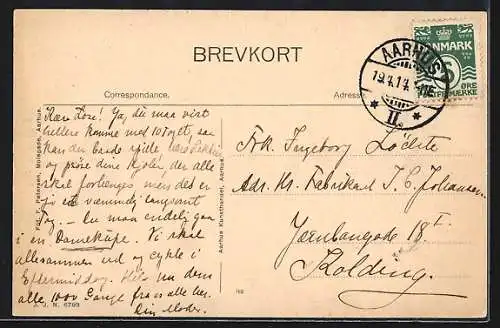 BREVKORT
Correspondance.
Adresse
DANMARK
5
ØRE
POSTFRIMÆRKE
AARHUS
19.4.14
* II. *
Kære Lore! Ja, du maa vist
hellere komme med 10 Toget, saa
kan der baade spille
og prøve dine Kjoler, der alle
skal forlænges men det er
jo et væmmelig langsomt
Tog. — Du maa endelig gaa
i en Damekupe. Vi skal
allesammen ud og cykle i
Eftermiddag. Hils nu dem
alle 1000 Gange fra os alle her.
Din Moder.
Frk. Ingeborg
Adr. Hr. Fabrikant J. C. Johansen
Jernbanegade 18 I
Kolding.
Fot. F. Petersen, Aarhus.
Aarhus Kunsthandel, Aarhus
A. J. N. 6799